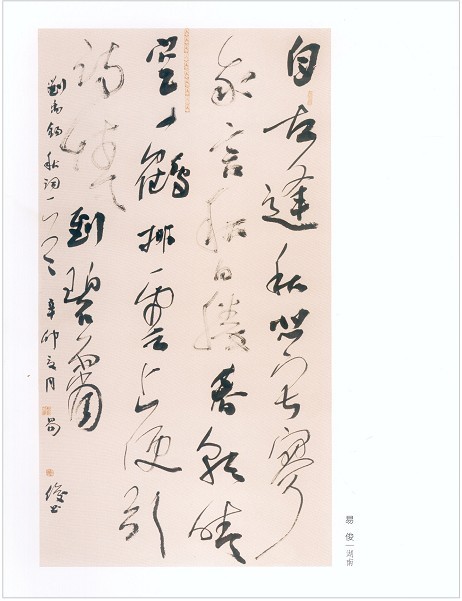 自古逢秋悲寂寥
我言秋日勝春朝晴
空一鶴排雲上便引
詩情到碧霄
劉禹錫秋詞一首 辛卯夏月 易俊書
易 俊｜湖南